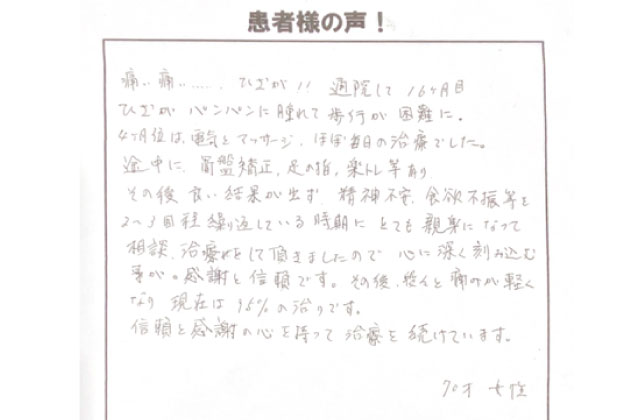 患者様の声！
痛い痛い…… ひざが！！ 通院して 16ヶ月目
ひざが パンパンに 腫れて 歩行が 困難に。
4ヶ月位は、電気とマッサージ、ほぼ毎日の治療でした。
途中に、骨盤矯正、足の指、楽トレ等あり
その後 良い結果が出ず、精神不安、食欲不振等を
2〜3回程 繰り返している時期に とても 親身になって
相談、治療をして頂きましたので 心に深く刻み込む
事が。感謝と信頼です。その後、段々と痛みが軽く
なり 現在は 95%の治りです。
信頼と感謝の心を持って 治療を 続けています。
70才 女性